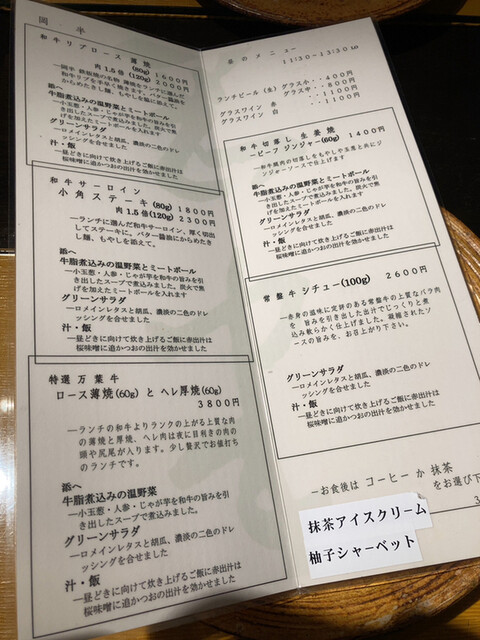 岡 半
和牛リブロース 薄焼
(80g) 1600円
肉1.5倍(120g) 2000円
添へ
牛脂煮込みの温野菜とミートボール
—小玉葱・人参・じゃが芋を和牛の旨みを引き出したスープで煮込みました。炭火で焦げを加えたミートボールを入れます
グリーンサラダ
—ロメインレタスと胡瓜、濃淡の二色のドレッシングを合せました
汁・飯
—昼どきに向けて炊き上げるご飯に赤出汁は桜味噌に追かつおの出汁を効かせました
和牛サーロイン
小角ステーキ(80g) 1800円
肉1.5倍(120g) 2300円
—ランチに選んだ和牛サーロイン、厚く切出してステーキに。バター醤油にからめたきし麺、もやしを添えて。
添へ
牛脂煮込みの温野菜とミートボール
—小玉葱・人参・じゃが芋を和牛の旨みを引き出したスープで煮込みました。炭火で焦げを加えたミートボールを入れます
グリーンサラダ
—ロメインレタスと胡瓜、濃淡の二色のドレッシングを合せました
汁・飯
—昼どきに向けて炊き上げるご飯に赤出汁は桜味噌に追かつおの出汁を効かせました
特選万葉牛
ロース薄焼(60g) と ヘレ厚焼(60g)
3800円
—ランチの和牛よりランクの上がる上質な肉の薄焼と厚焼、ヘレ肉は夜に目利きの肉の頭や尻尾が入ります。少し贅沢でお値打ちのランチです。
添へ
牛脂煮込みの温野菜
—小玉葱・人参・じゃが芋を和牛の旨みを引き出したスープで煮込みました。
グリーンサラダ
—ロメインレタスと胡瓜、濃淡の二色のドレッシングを合せました
汁・飯
—昼どきに向けて炊き上げるご飯に赤出汁は桜味噌に追かつおの出汁を効かせました
昼のメニュー
11:30~13:30
ランチビール(生) グラス小・・400円
グラス中・・800円
グラスワイン 赤 ・・1100円
グラスワイン 白 ・・1100円
和牛切落し 生姜焼
—ビーフ ジンジャー(60g) 1400円
添へ
牛脂煮込みの温野菜とミートボール
—小玉葱・人参・じゃが芋を和牛の旨みを引き出したスープで煮込みました。炭火で焦げを加えたミートボールを入れます
グリーンサラダ
—ロメインレタスと胡瓜、濃淡の二色のドレッシングを合せました
汁・飯
—昼どきに向けて炊き上げるご飯に赤出汁は桜味噌に追かつおの出汁を効かせました
常盤牛 シチュー(100g) 2600円
—赤身の滋味に定評のある常盤牛の上質なバラ肉を 旨みを引き出した出汁でじっくりと煮込み軟らかく仕上げました。凝縮されたソースの旨味を、お召上がり下さい。
グリーンサラダ
—ロメインレタスと胡瓜、濃淡の二色のドレッシングを合せました
汁・飯
—昼どきに向けて炊き上げるご飯に赤出汁は桜味噌に追かつおの出汁を効かせました
—お食後は コーヒー か 抹茶
をお選び下
3
抹茶アイスクリーム
柚子シャーベット